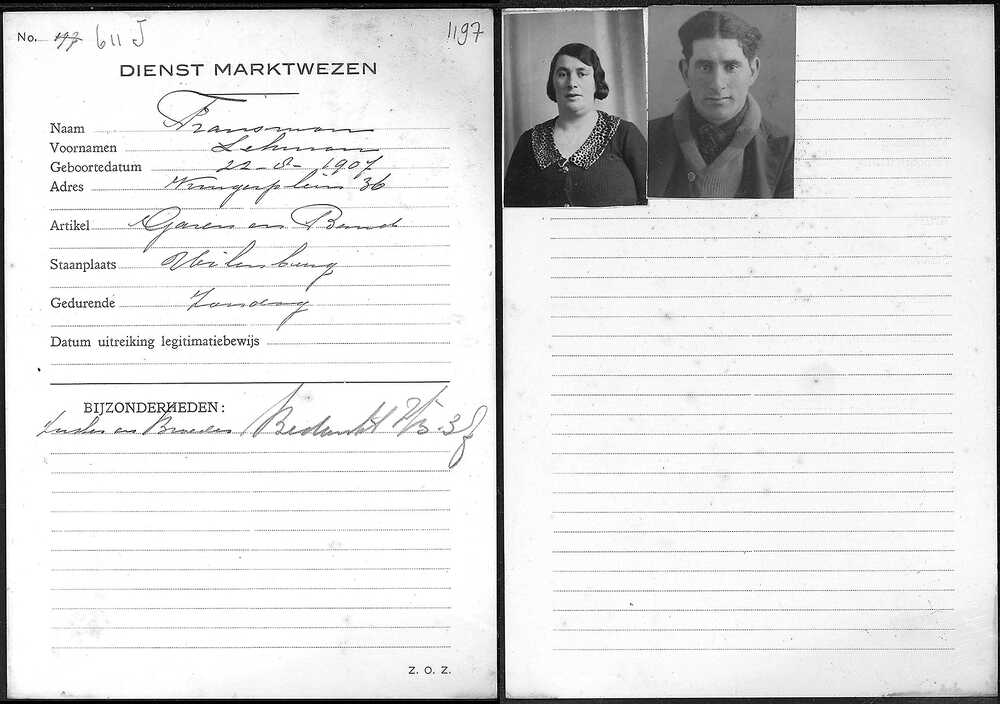 No. 197 611 J 1197
DIENST MARKTWEZEN
Naam Fransman
Voornamen Lehman
Geboortedatum 22-8-1907
Adres Krugerplein 36
Artikel Garen en Band
Staanplaats Uilenburg
Gedurende Zondag
Datum uitreiking legitimatiebewijs
BIJZONDERHEDEN:
Zuster en Broeder Bedankt
Z. O. Z.